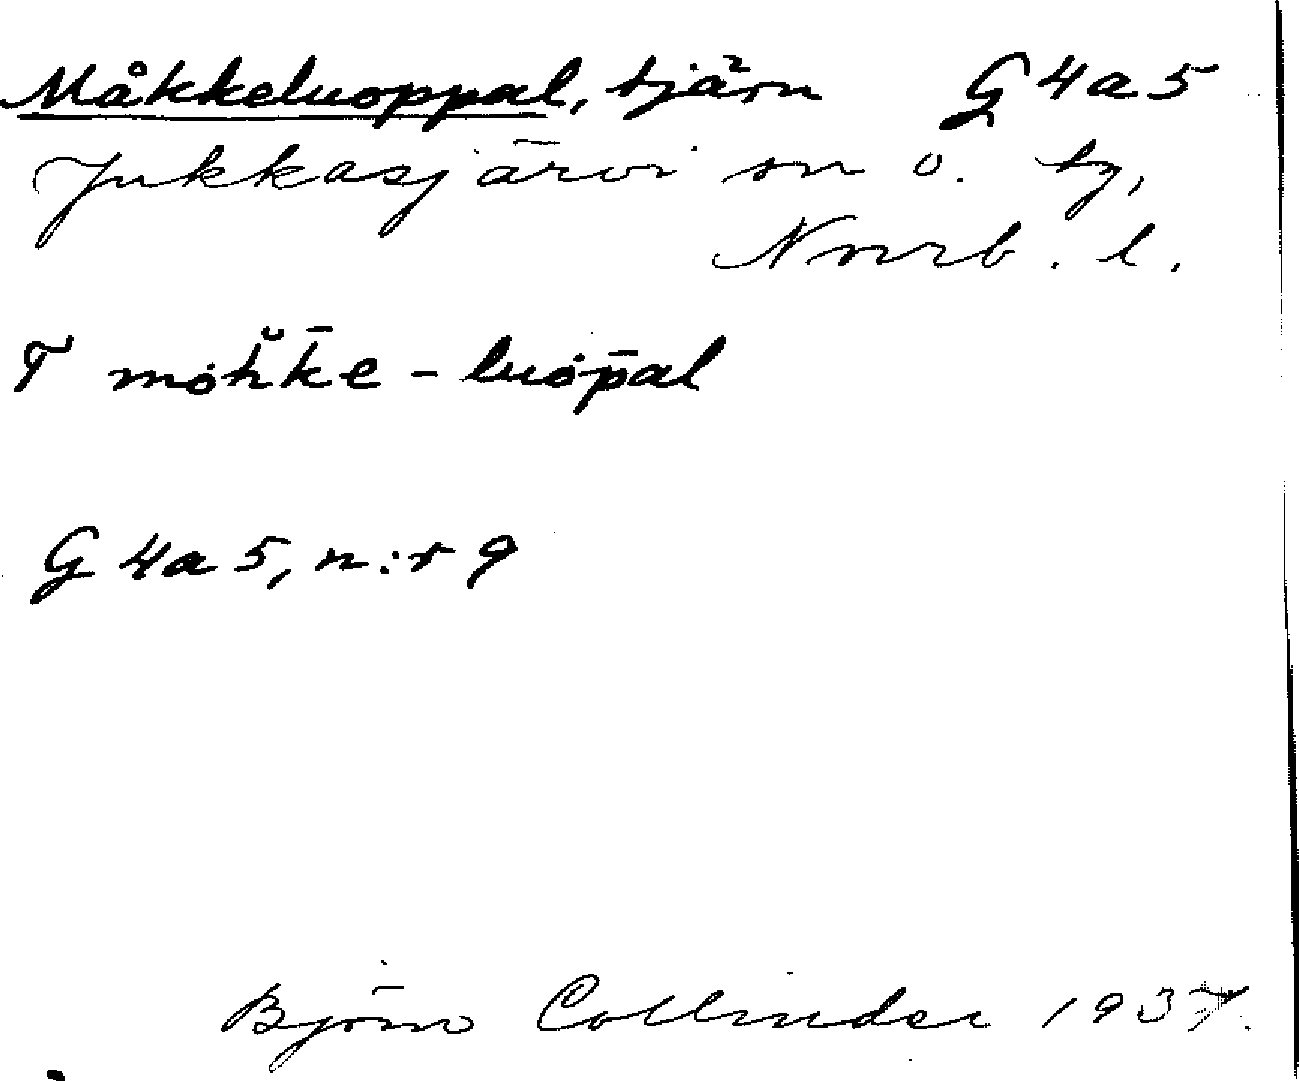 Måkkeluoppal, tjärn G 4 a 5
Jukkasjärvi sn o. tg,
Norrb. l.
T mȯh̆k̄e - luȯp̄al
G 4 a 5, n:r 9
Björn Collinder 1937.